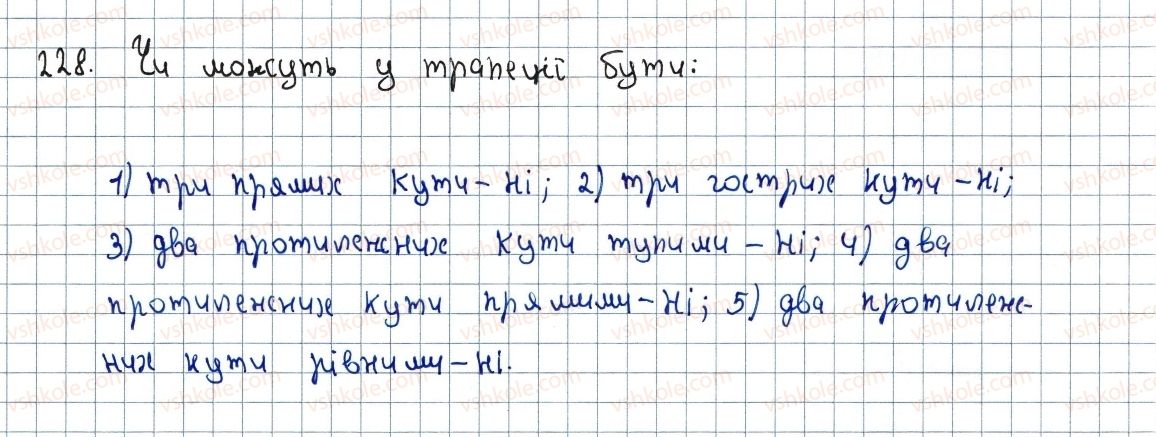 228. Чи можуть у трапеції бути:
1) три прямих кути - ні; 2) три гострих кути - ні;
3) два протилежних кути тупими - ні; 4) два
протилежних кути прямими - ні; 5) два протилеж-
них кути рівними - ні.